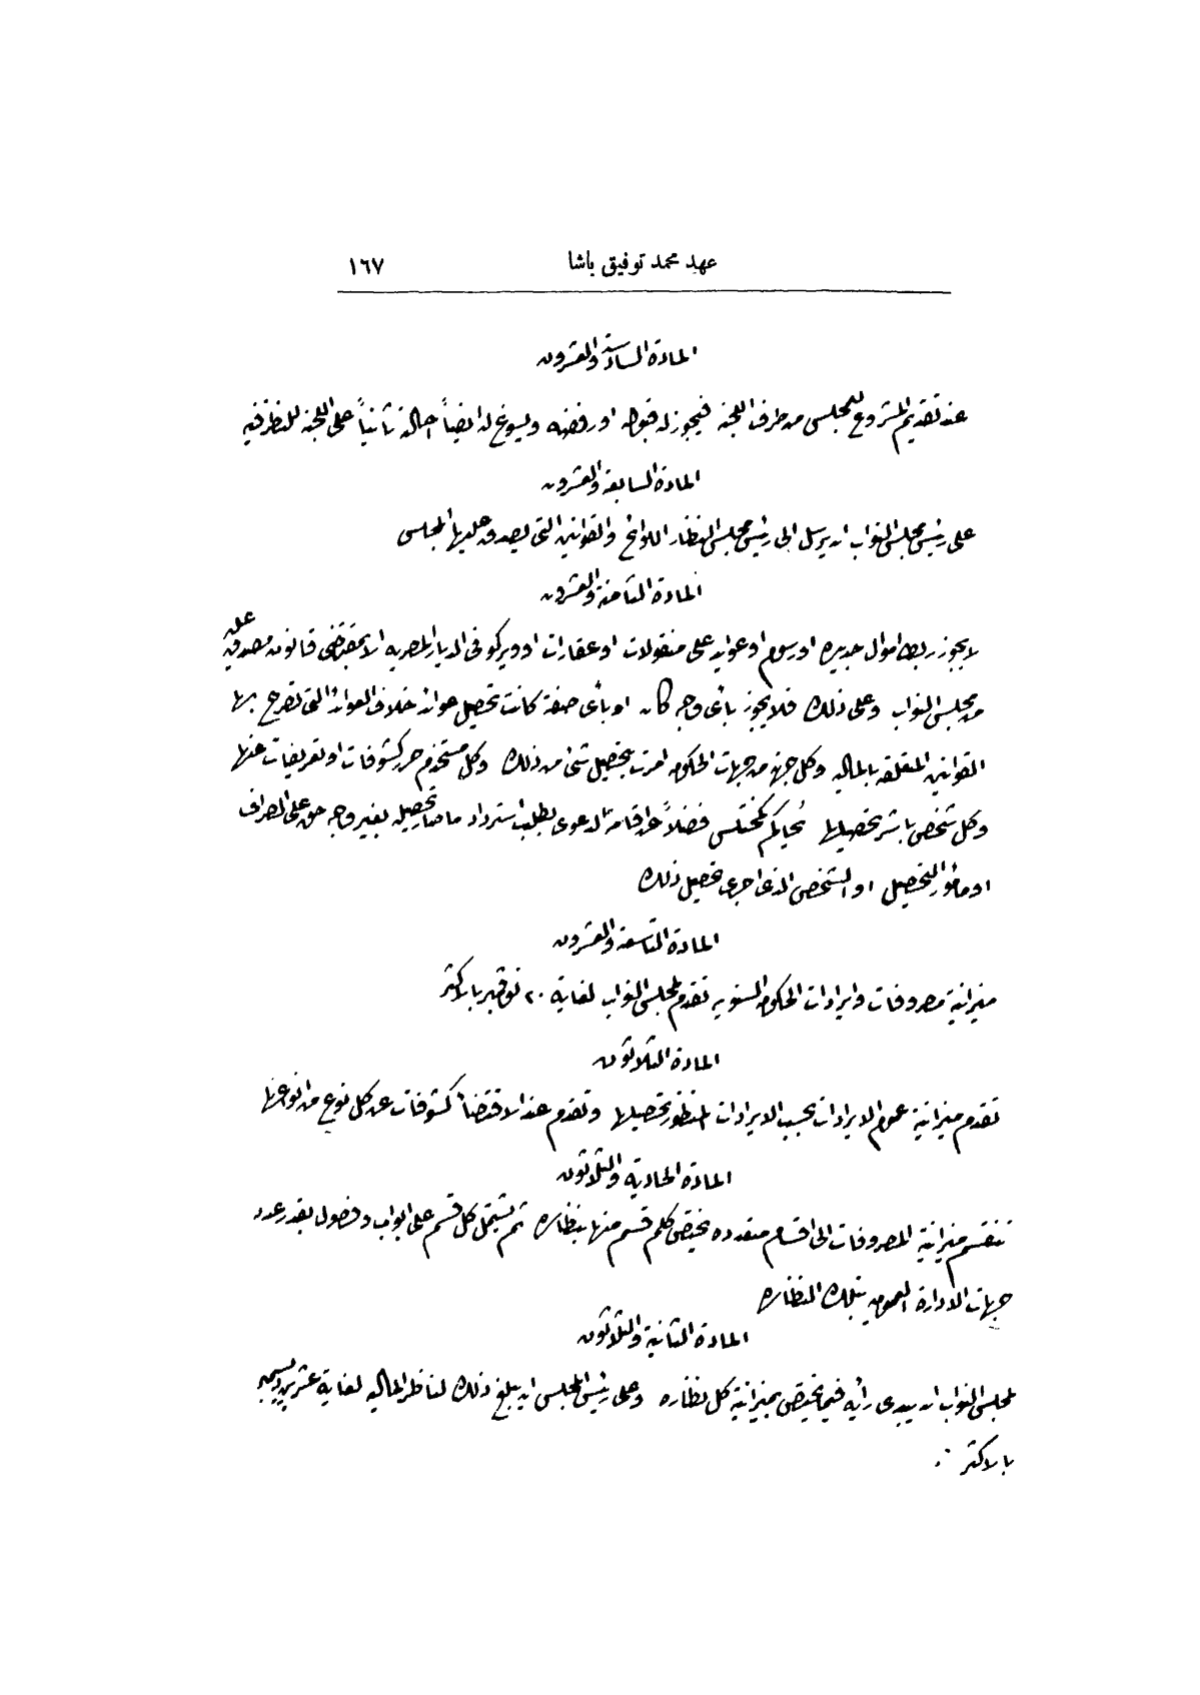 عهد محمد توفيق باشا ١٦٧
المادة السادسة والعشرون
عند تقديم المشروع للمجلس من طرف اللجنه فيجوز له قبوله او رفضه ويسوغ له ايضاً احالته ثانياً على اللجنه للنظر فيه
المادة السابعة والعشرون
على رئيس مجلس النواب ان يرسل الى رئيس مجلس النظار اللوائح والقوانين التى يصدق عليها المجلس
المادة الثامنة والعشرون
لا يجوز ربط اموال جديده او رسوم او عوايد على منقولات او عقارات او ويركو فى الديار المصريه الا بمقتضى قانون مصدق عليه
من مجلس النواب وعلى ذلك فلا يجوز بأى وجه كان او بأى صفة كانت تحصيل عوائد خلاف العوائد التى تصرح بها
القوانين المتعلقه بالماليه وكل جهة من جهات الحكومه امرت بتحصيل شئ من ذلك وكل مستخدم حرر كشوفات او تعريفات عنها
وكل شخص باشر تحصيلها يُحاكم كمختلس فضلاً عن اقامة الدعوى بطلب استرداد ما صار تحصيله بغير وجه حق على الصراف
او مأمور التحصيل او الشخص الذى اجرى تحصيل ذلك
المادة التاسعة والعشرون
ميزانية مصروفات وايرادات الحكومه السنويه تقدم لمجلس النواب لغاية ٢٠ نوفمبر بالاكثر
المادة الثلاثون
تقدم ميزانية عموم الايرادات بحسب الايرادات المنظور تحصيلها وتقدم عند الاقتضاء كشوفات عن كل نوع من انواعها
المادة الحادية والثلاثون
تنقسم ميزانية المصروفات الى اقسام متعدده يختص كل قسم منها بنظاره ثم يشتمل كل قسم على ابواب وفصول بقدر عدد
جهات الادارة العموميه بتلك النظاره
المادة الثانية والثلاثون
لمجلس النواب ان يبدى رأيه فيما يختص بميزانية كل نظاره وعلى رئيس المجلس ان يبلغ ذلك لناظر الماليه لغاية عشرين ديسمبر
بالاكثر